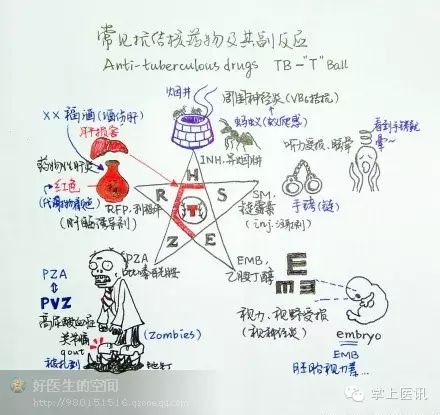 常见抗结核药物及其副反应
Anti-tuberculous drugs TB-"T" Ball
烟井
周围神经炎 (VB6拮抗)
蚂蚁 (蚁爬感)
INH.异烟肼
××福酒 (酒伤肝)
肝损害
药物性肝炎
红色
(代谢物橘色)
RFP.利福平
(肝酶诱导剂)
听力受损、眩晕
看到手铐就晕~
手铐 (链)
SM.
链霉素
(inj.注射剂)
H
R
S
T
Z
E
PZA
吡嗪酰胺
EMB.
乙胺丁醇
PZA
PVZ
高尿酸血症
关节痛
gout
被扎到
地钉
(Zombies)
E
m
视力、视野受损
(视神经炎)
embryo
EMB
胚胎视力差...
好医生的空间
http://980151516.qzone.qq.com
掌上医讯